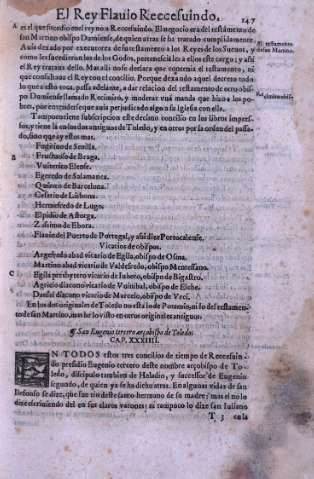 El Rey Flauio Reccesuindo. 247
A el que sucedio en el reyno a Reccesuindo. El negocio era el testamento de
san Martino obispo Dumiense, de quien atras se ha tratado cumplidamente
Auia dexado por executores de su testamento a los Reyes de los Sueuos, y
como les sucedieron los de los Godos, pertenescia les a ellos este cargo: y assi
el Rey tratan dello. Mas alli no se declara que contenia el testamento, ni
que consultaua el Rey con el concilio. Porque dexando aquel decreto todo
lo que a esto toca, passa adelante, a dar relacion del testamento de otro obis-
po Dumiense llamado Recimiro, y moderar vna manda que hizo a los po-
bres, por entenderse que auia perjudicado algo a su Iglesia con ella.
El testamento
de san Martino.
Tampoco tiene subscripcion este decimo concilio en los libros impres-
sos, y tiene la en los dos antiguos de Toledo, y en otros por la orden del passa-
do, sino que ay estos mas.
Fugitiuo de Seuilla.
B Fructuoso de Braga.
Egeredo de Salamanca.
Quirico de Barcelona.
Cesario de Lisbona.
Hermefredo de Lugo.
Elpidio de Astorga.
Zosimo de Ebora.
Flauio del Puerto de Portugal, y assi dize Portocalense.
Vicarios de obispos.
Argefredo abad vicario de Egilo, obispo de Osma.
Martino abad vicario de Valdefredo, obispo Mentesano.
C Egila presbytero vicario de obispo de Bigastro.
Agricio diacono vicario de obispo de Elche.
Daniel diacono vicario de Marcelo, obispo de Vrci.
En los dos originales de Toledo no esta lo de Potamio, ni lo del testamen-
to de san Martino, mas he lo visto en otros originales antiguos.
¶ San Eugenio tercero arçobispo de Toledo.
CAP. XXXIIII.
EN TODOS estos tres concilios de tiempo de Reccesuin-
do presidio Eugenio tercero deste nombre arçobispo de To-
ledo, discipulo tambien de Heladio, y successor de Eugenio
segundo, de quien ya se ha dicho atras. En algunas vidas de san
Ilefonso se dize, que fue tio deste santo hermano de su madre; mas el no lo
dize escriuiendo del en sus claros varones: ni tampoco lo dize san Iuliano
T 3 en la